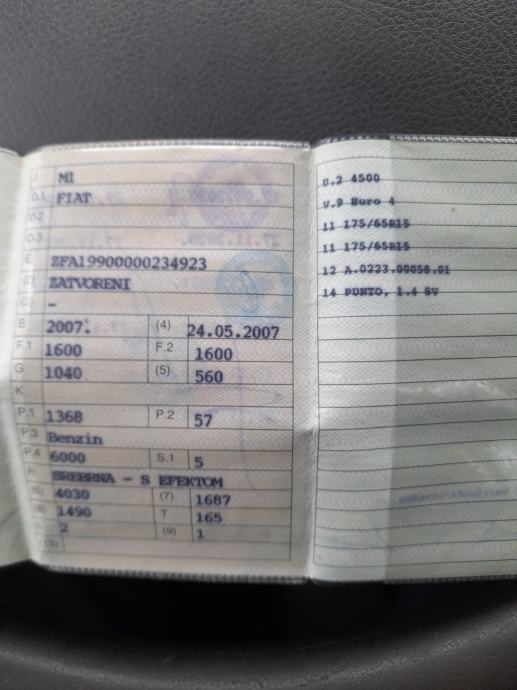 J M1
D.1 FIAT
D.2
D.3
E ZFA19900000234923
ZATVORENI
-
B 2007. (4) 24.05.2007
F.1 1600 F.2 1600
G 1040 (5) 560
K
P.1 1368 P.2 57
P.3 Benzin
P.4 6000 S.1 5
R SREBRNA - S EFEKTOM
(6) 4030 (7) 1687
(8) 1490 T 165
L 2 (9) 1
U.2 4500
V.9 Euro 4
11 175/65R15
11 175/65R15
12 A.0223.00058.01
14 PUNTO, 1.4 8V